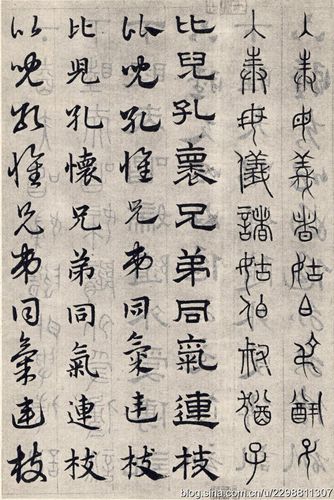 入奉母義者姑白叔猷子
入奉母儀諸姑伯叔猶子
比兒孔褱兄弟同氣連枝
比兒孔懷兄弟同氣連枝
比兒孔懷兄弟同氣連枝
比兒孔懷兄弟同氣連枝
blog.sina.com.cn/u/2298811307